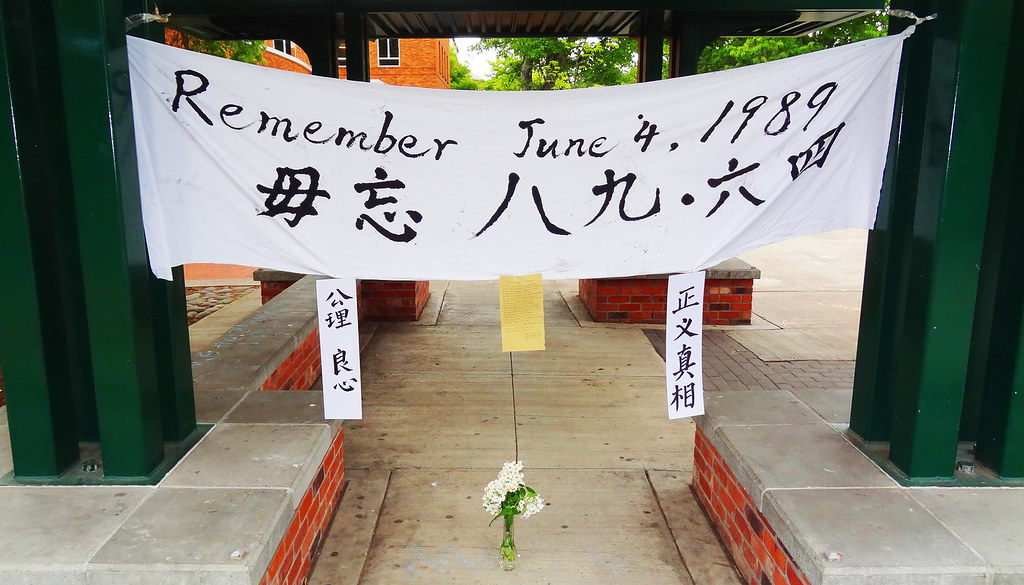 Remember June 4, 1989
毋忘 八九·六四
公理 良心
正义真相